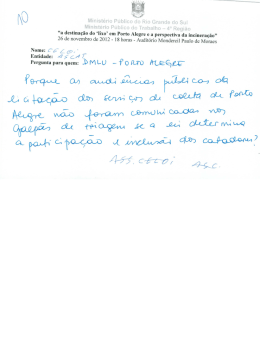 NO
Ministério Público do Rio Grande do Sul
Ministério Público do Trabalho – 4ª Região
"a destinação do 'lixo' em Porto Alegre e a perspectiva da incineração"
26 de novembro de 2012 - 18 horas - Auditório Mondercil Paulo de Moraes
Nome:
Entidade: ASCAT
Pergunta para quem: DMLU - PORTO ALEGRE
Porque as audiências públicas da
licitação dos serviços de coleta de Porto
Alegre não foram comunicadas nos
galpões de triagem se a lei determina
a participação e inclusão dos catadores?